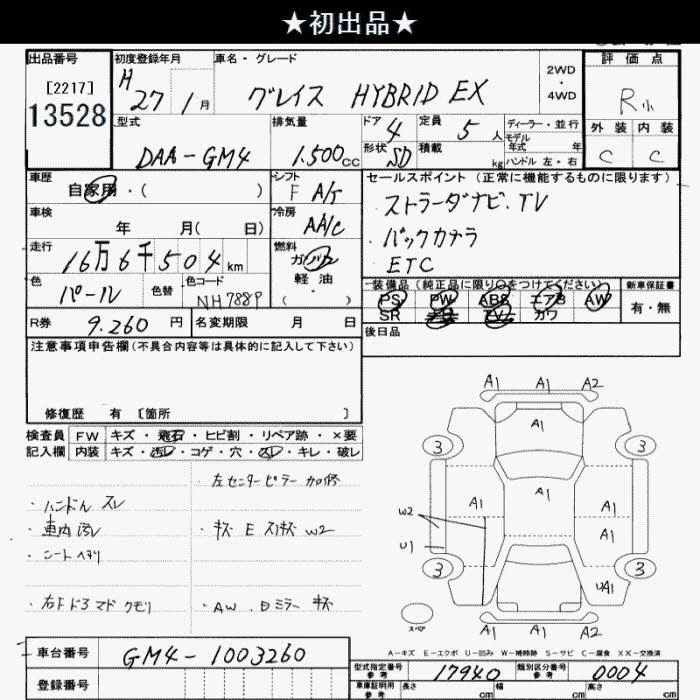 ★初出品★
出品番号
[2217]
13528
初度登録年月
H 27 1月
車名・グレード
グレイス HYBRID EX
2WD
・
4WD
評価点
R小
外装 内装
C C
型式
DAA-GM4
排気量
1.500cc
ドア
4
形状
SD
定員
5人
積載
kg
ディーラー・並行
モデル
年式 年
ハンドル 左・右
車歴
自家用・( )
シフト
F A/T
車検
年 月( 日)
冷房
AA/C
走行
16万6千504km
燃料
ガソリン
軽油
( )
色
パール
色替
色コード
NH788P
R券
9.260円
名変期限 月 日
セールスポイント(正常に機能するものに限ります)
・ストラーダナビ.TV
・バックカメラ
ETC
装備品(純正品に限り○をつけてください)
PS PW ABS エアB AW
SR TV カワ
新車保証書
有・無
後日品
注意事項申告欄(不具合内容等は具体的に記入して下さい)
修復歴 有 [箇所 ]
検査員
記入欄
FW キズ・飛石・ヒビ割・リペア跡・×要
内装 キズ・汚レ・コゲ・穴・スレ・キレ・破レ
・左センターピラー 加修
・ハンドル スレ
・車内 汚レ
・シート ヘタリ
・キズ E スリキズ W2
・右Fドラ マド クモリ
・AW.Dミラー キズ
A1 A1 A2
A1
3 3
A1
A1 A1
W2
A1
U1
3 3
UA1
スペア
A-キズ E-エクボ U-凹み W-補修跡 S-サビ C-腐食 XX-交換済
車台番号
GM4-1003260
登録番号
型式指定番号
参考
17940
類別区分番号
参考
0004
車庫証明用
参考
長さ cm 幅 cm 高さ cm